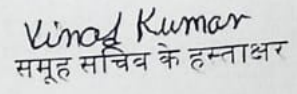 Vinod Kumar
समूह सचिव के हस्ताक्षर